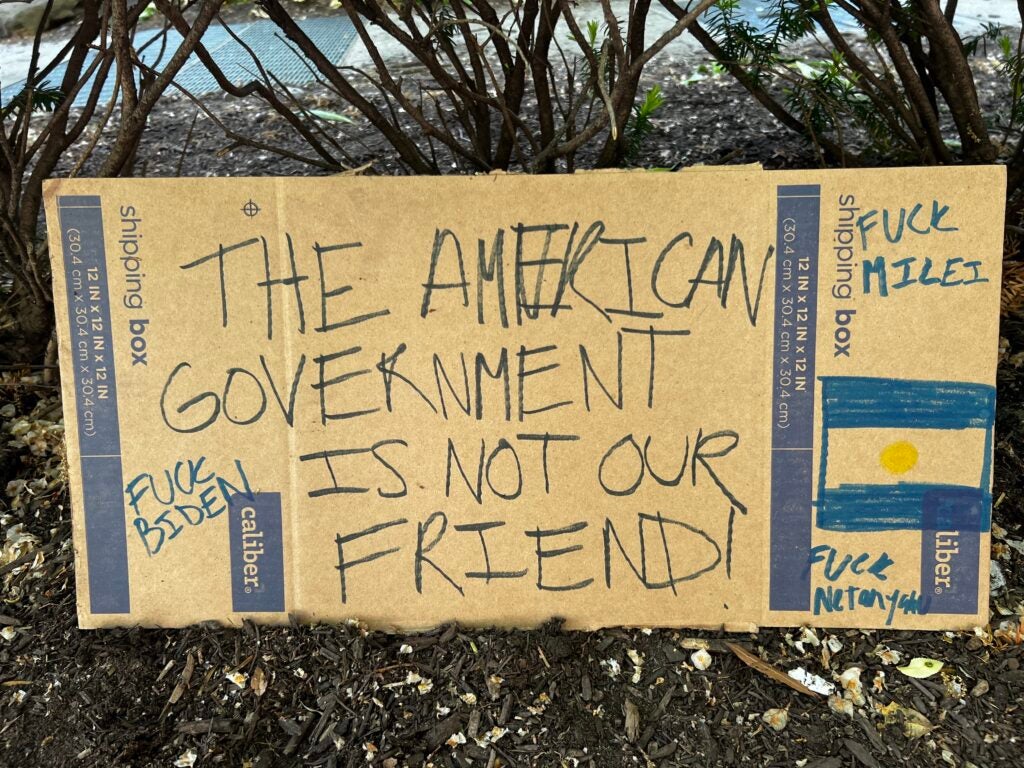 THE AMERICAN
GOVERNMENT
IS NOT OUR
FRIEND!
FUCK
BIDEN
FUCK
MILEI
FUCK
Netanyahu
shipping box
12 IN x 12 IN x 12 IN
(30.4 cm x 30.4 cm x 30.4 cm)
caliber®
shipping box
12 IN x 12 IN x 12 IN
(30.4 cm x 30.4 cm x 30.4 cm)
liber®